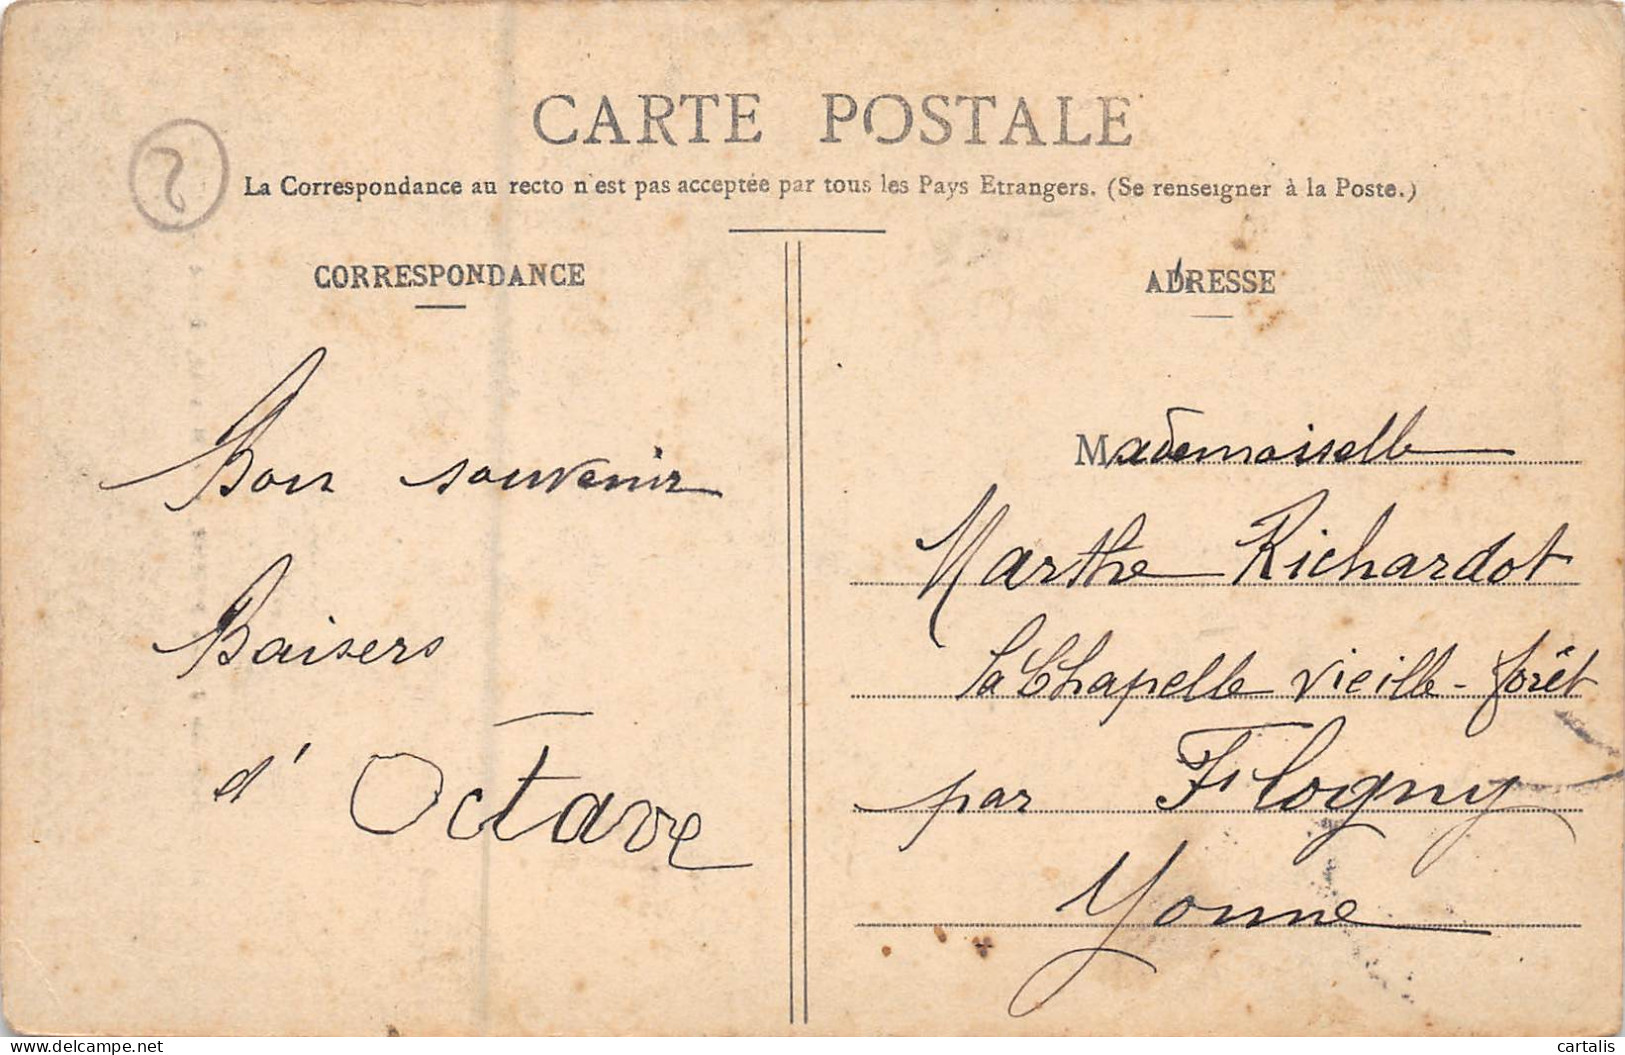 CARTE POSTALE
2
La Correspondance au recto n'est pas acceptée par tous les Pays Etrangers. (Se renseigner à la Poste.)
CORRESPONDANCE
Bon souvenir
Baisers
d' Octave
ADRESSE
Mademoiselle
Marthe Richardot
la Chapelle vieille-forêt
par Flogny
Yonne
www.delcampe.net
cartalis